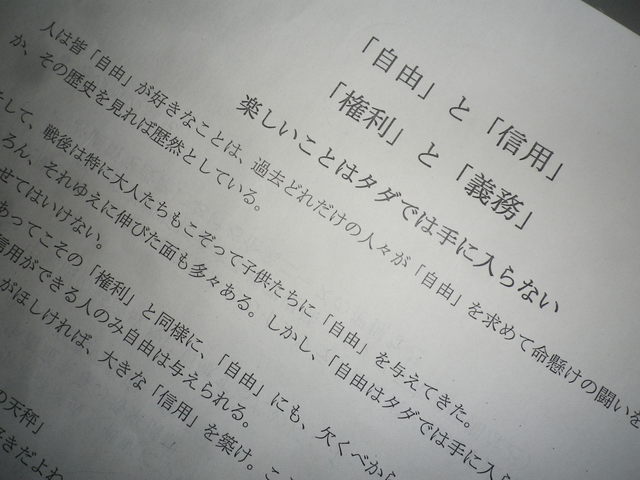 「自由」と「信用」
「権利」と「義務」
楽しいことはタダでは手に入らない
人は皆「自由」が好きなことは、過去どれだけの人々が「自由」を求めて命懸けの闘いを
か、その歴史を見れば歴然としている。
そして、戦後は特に大人たちもこぞって子供たちに「自由」を与えてきた。
ろん、それゆえに伸びた面も多々ある。しかし、「自由はタダでは手に入ら
せてはいけない。
あってこその「権利」と同様に、「自由」にも、欠くべから
信用ができる人のみ自由は与えられる。
がほしければ、大きな「信用」を築け。こ
の天秤」
好きだよね